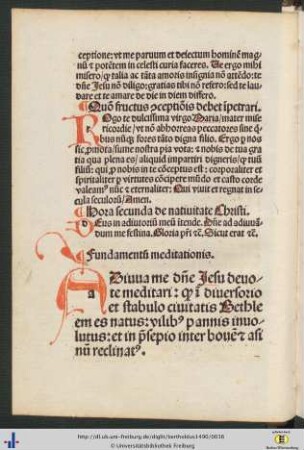 ceptione: vt me paruum et deiectum hominē mag
nū et potētem in celesti curia faceres. Ue ergo mihi
misero / qꝫ talia ac tāta amoris insignia nō attēdo: te
dn̄e Jesu nō diligo: gratias tibi nō refero: sed te lau
dare et te amare de die in diem differo.
Quō fructus ꝯceptiōis debet ipetrari.
Rogo te dulcissima virgo Maria / mater mise
ricordie / vt nō abhorreas peccatores sine q̄
bus nūqꝫ fores tāto digna filio. Ergo ꝓ nos
sic ꝓmota / sume nostra pia vota: et nobis de tua gra
tia qua plena es / aliquid impartiri digneris / et tuū
filiū: qui ꝓ nobis in te cōceptus est: corporaliter et
spiritualiter ꝑ virtutes cōcipere mūdo et casto corde
valeamꝰ nūc et eternaliter: Qui viuit et regnat in se
cula seculorū / Amen.
Hora secunda de natiuitate Christi.
Deus in adiutoriū meū ītende. Dn̄e ad adiuuā
dum me festina. Gloria pr̄i ⁊c̄. Sicut erat ⁊c̄.
Fundamentū meditationis.
Adiuua me dn̄e Jesu deuo-
te meditari: qꝫ ī diuersorio
et stabulo ciuitatis Bethle
em es natus: vilibꝰ pannis inuo-
lutus: et in p̄sepio inter bouē et asi
nū reclinatꝰ.
http://dl.ub.uni-freiburg.de/diglit/bertholdus1490/0016
© Universitätsbibliothek Freiburg